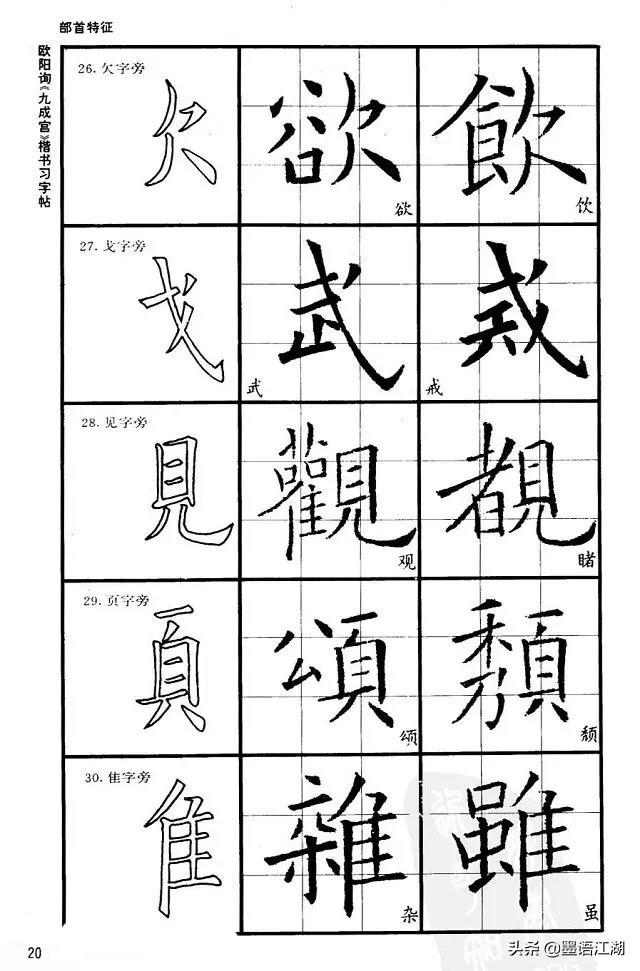 部首特征
欧阳询《九成宫》楷书习字帖
26. 欠字旁
欠 欲 飲
欲 饮
27. 戈字旁
戈 武 戒
武 戒
28. 见字旁
見 觀 覩
观 睹
29. 页字旁
頁 頌 頽
颂 颓
30. 隹字旁
隹 雜 雖
杂 虽
20
头条 @墨语江湖